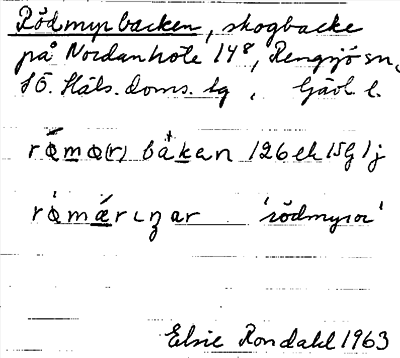 Rödmyrbacken, skogbacke
på Nordanhole 14⁸, Rengsjö sn,
SÖ. Häls. doms. lg, Gävl. l.
rø̀mø(r) bakan 126 ek 15G 1j
rø̀mǽrıŋar 'rödmyror'
Elsie Rondahl 1963